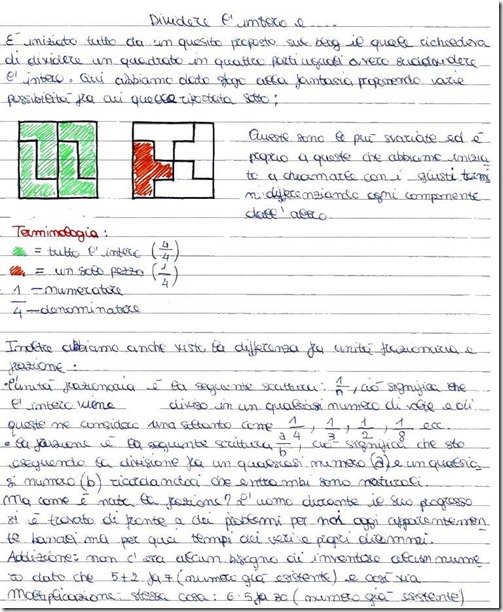 Dividere l'intero e ....
È iniziato tutto da un quesito proposto sul blog il quale richiedeva
di dividere un quadrato in quattro parti uguali ovvero suddividere
l'intero. Qui abbiamo dato sfogo alla fantasia proponendo varie
possibilità fra cui quelle riportata sotto:
Queste sono le più svariate ed è
proprio a queste che abbiamo inizia
to a chiamarle con i giusti termi
ni differenziando ogni componente
dall'altro
Terminologia:
= tutto l'intero (4/4)
= un solo pezzo (1/4)
1 — numeratore
4 — denominatore
Inoltre abbiamo anche visto la differenza fra unità frazionaria e
frazione:
• L'unità frazionaria è la seguente scrittura: 1/n, ciò significa che
l'intero viene diviso in un qualsiasi numero di volte e di
queste ne considero una soltanto come 1/4, 1/3, 1/2, 1/8 ecc.
• La frazione è la seguente scrittura a/b, ciò significa che sto
eseguendo la divisione fra un qualsiasi numero (a) e un qualsia
si numero (b) ricordandoci che entrambi sono naturali.
Ma come è nata la frazione? L'uomo durante il suo progresso
si è trovato di fronte a dei problemi per noi oggi apparentemen
te banali ma per quei tempi dei veri e propri dilemmi.
Addizione: non c'era alcun bisogno di inventare alcun nume
ro dato che 5+2 fa 7 (numero già esistente) e così via
Moltiplicazione: stessa cosa: 6·5 fa 30 (numero già esistente)